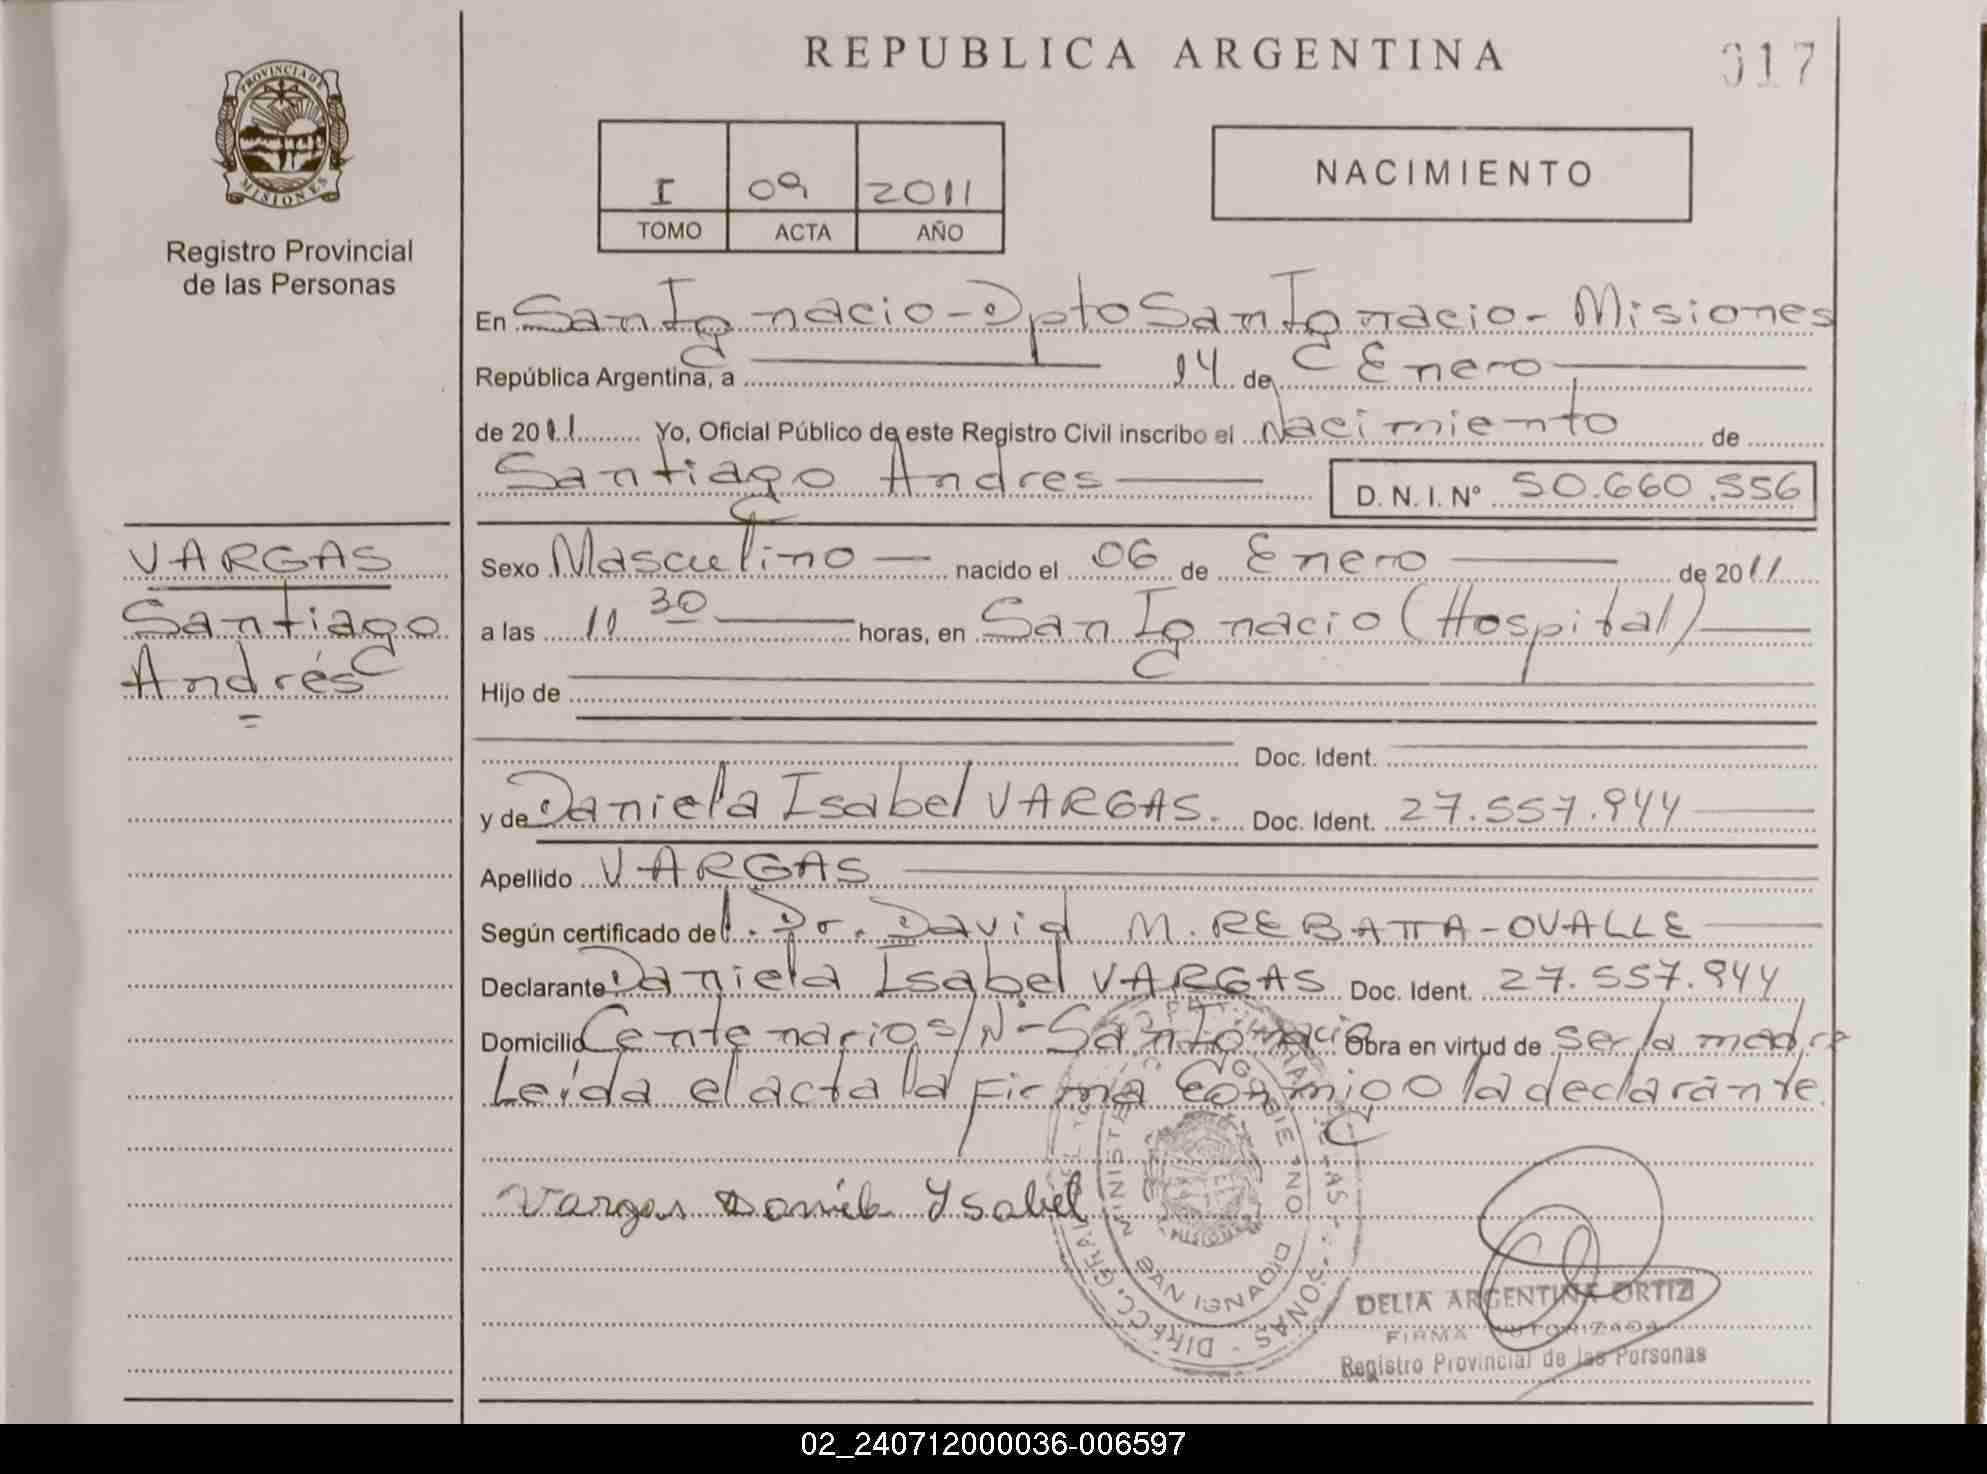 REPUBLICA ARGENTINA
017
PROVINCIA DE
MISIONES
Registro Provincial
de las Personas
I 09 2011
TOMO ACTA AÑO
NACIMIENTO
En San Ignacio - Dpto San Ignacio - Misiones
República Argentina, a 14 de Enero
de 2011 Yo, Oficial Público de este Registro Civil inscribo el Nacimiento de
Santiago Andres D. N. I. Nº 50.660.556
VARGAS
Santiago
Andrés
Sexo Masculino nacido el 06 de Enero de 2011
a las 11 30 horas, en San Ignacio (Hospital)
Hijo de
Doc. Ident.
y de Daniela Isabel VARGAS. Doc. Ident. 27.557.944
Apellido VARGAS
Según certificado del Dr. David M. REBATTA-OVALLE
Declarante Daniela Isabel VARGAS Doc. Ident. 27.557.944
Domicilio Centenario s/Nº - San Ignacio Obra en virtud de ser la madre
Leída el acta la firma conmigo la declarante
Vargas Daniela Ysabel
DELIA ARGENTINA ORTIZ
FIRMA AUTORIZADA
Registro Provincial de las Personas
02_240712000036-006597